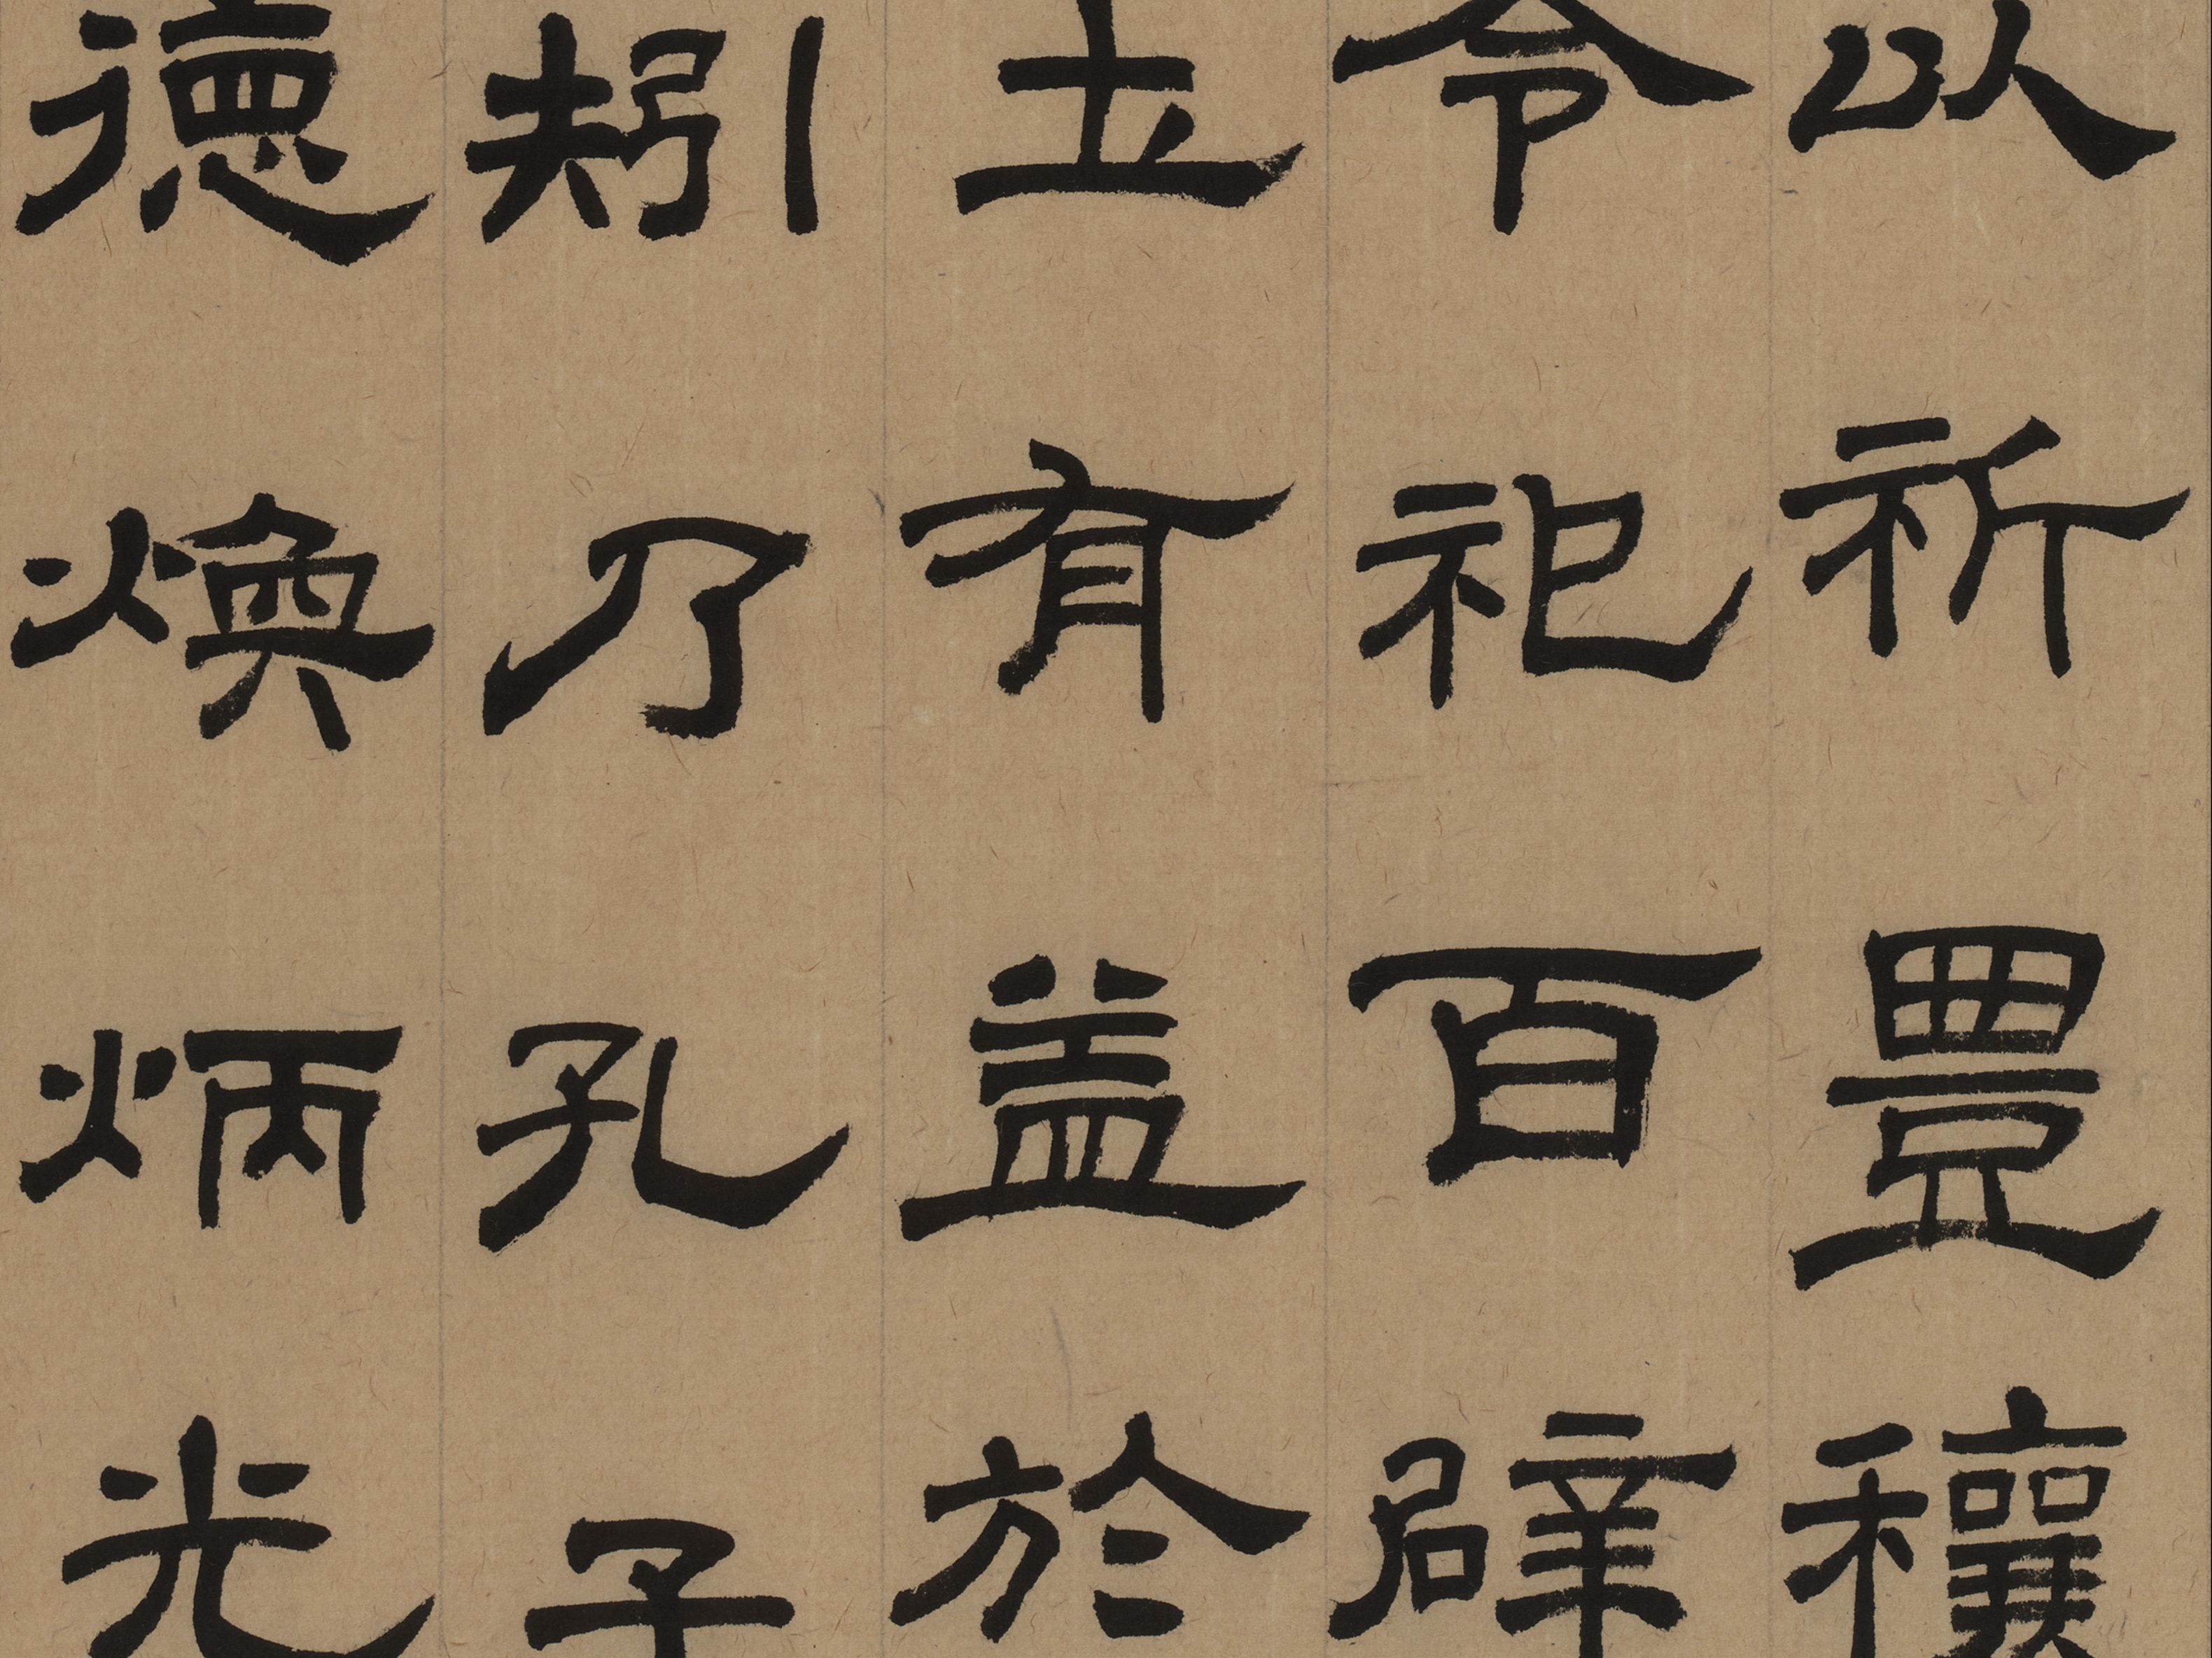 以祈豊穰
令祀百辟
士有益於
矧乃孔子
德煥炳光